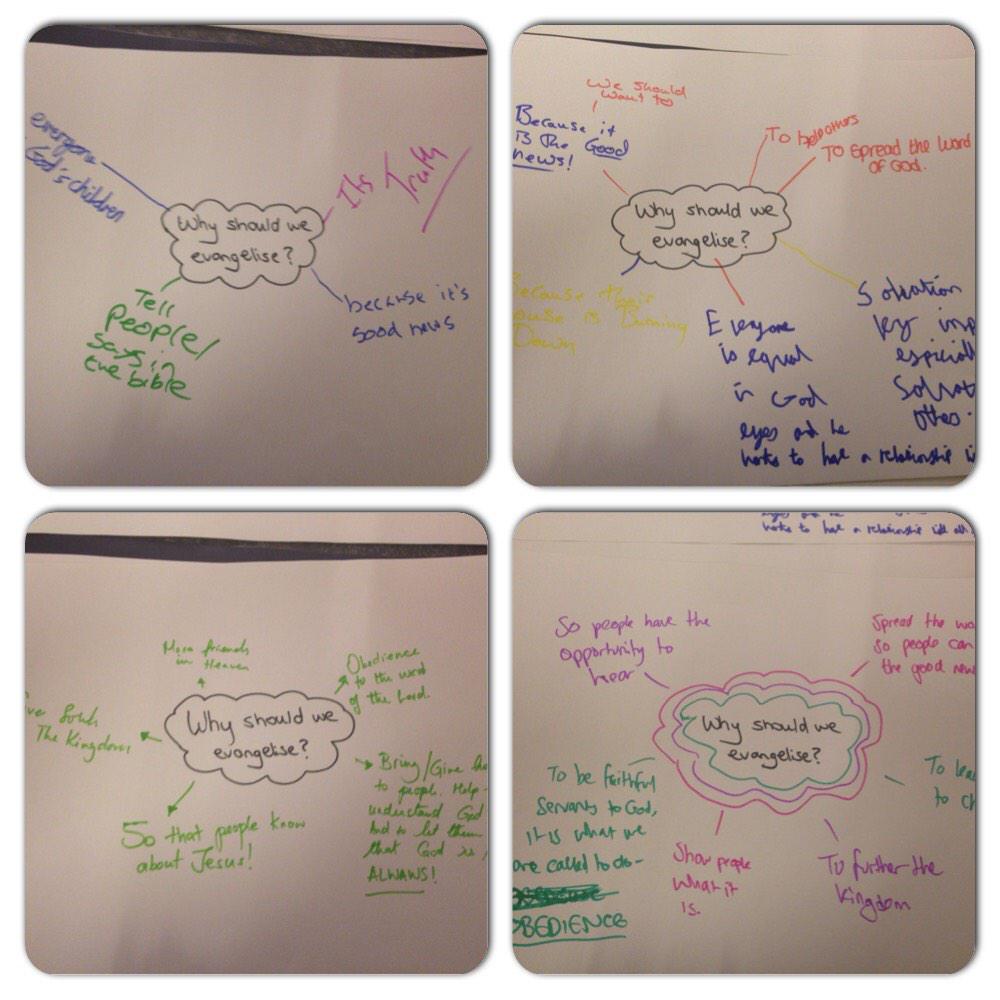 everyone
God's children
Why should we
evangelise?
Its Truth
Tell
People/
says in
the bible
because it's
good news
We should
want to
Because it
is the Good
news!
To help others
To spread the word
of God.
Why should we
evangelise?
Because their
is Burning
Down
Everyone
is equal
in God
eyes and he
wants to have a relationship
Salvation
key
Others.
wants to have a relationship
More friends
in Heaven
Obedience
to the word
of the Lord.
Why should we
evangelise?
Souls
The Kingdom
So that people know
about Jesus!
Bring/Give
to people. Help
understand God
And to let them
that God is
ALWAYS!
So people have the
opportunity to
hear
Spread the
so people can
the good
Why should we
evangelise?
To be faithful
servants to God,
it is what we
are called to do-
OBEDIENCE
Show people
what it
is.
To further the
Kingdom
To
to